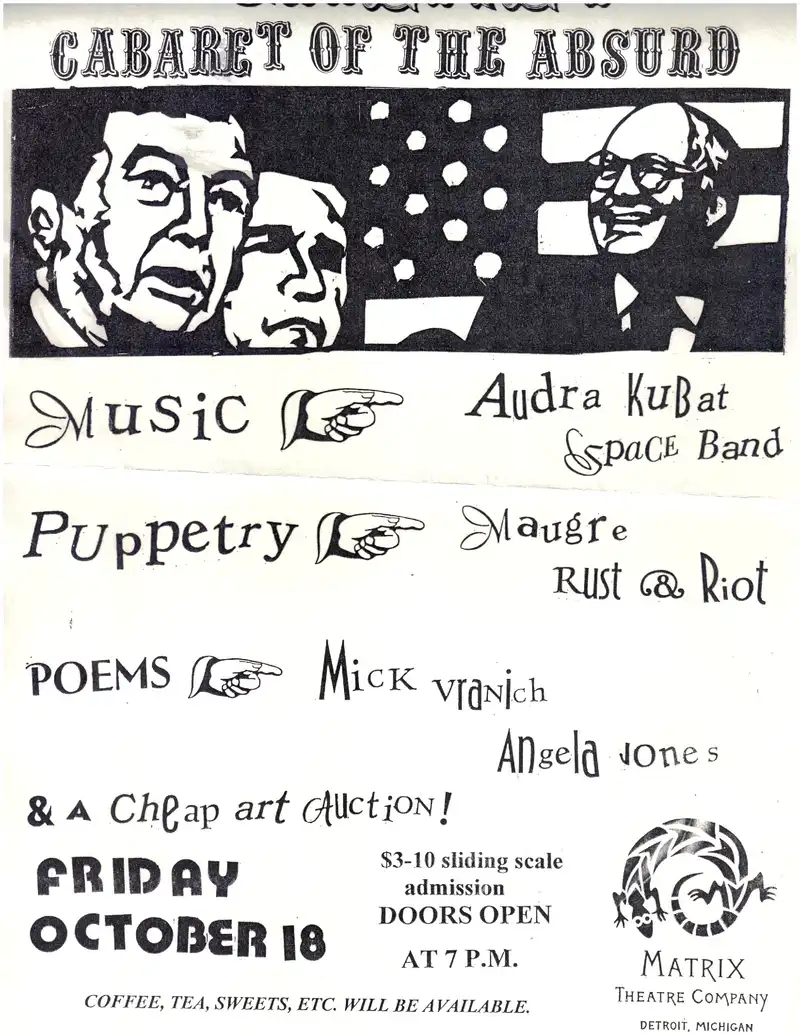 CABARET OF THE ABSURD
MUSiC
AUdra KuBat
SPACE Band
PUppetry
Maugre
RUST & RioT
POEMS
MicK vranich
Angela Jones
& A CHeap art AUCTiON!
FRIDAY
OCTOBER 18
$3-10 sliding scale
admission
DOORS OPEN
AT 7 P.M.
COFFEE, TEA, SWEETS, ETC. WILL BE AVAILABLE.
MATRIX
THEATRE COMPANY
DETROIT, MICHIGAN